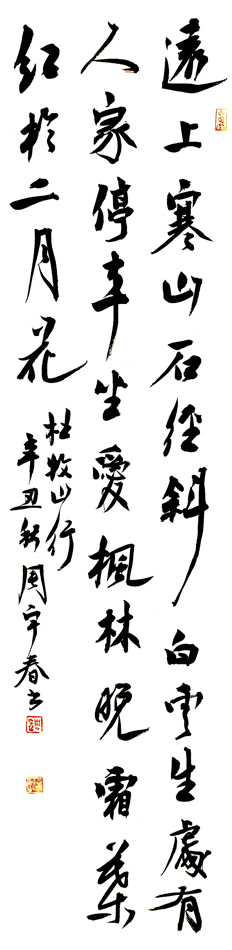 遠上寒山石徑斜白雲生處有
人家停車坐愛楓林晚霜葉
紅於二月花
杜牧山行
辛丑秋周宇春书